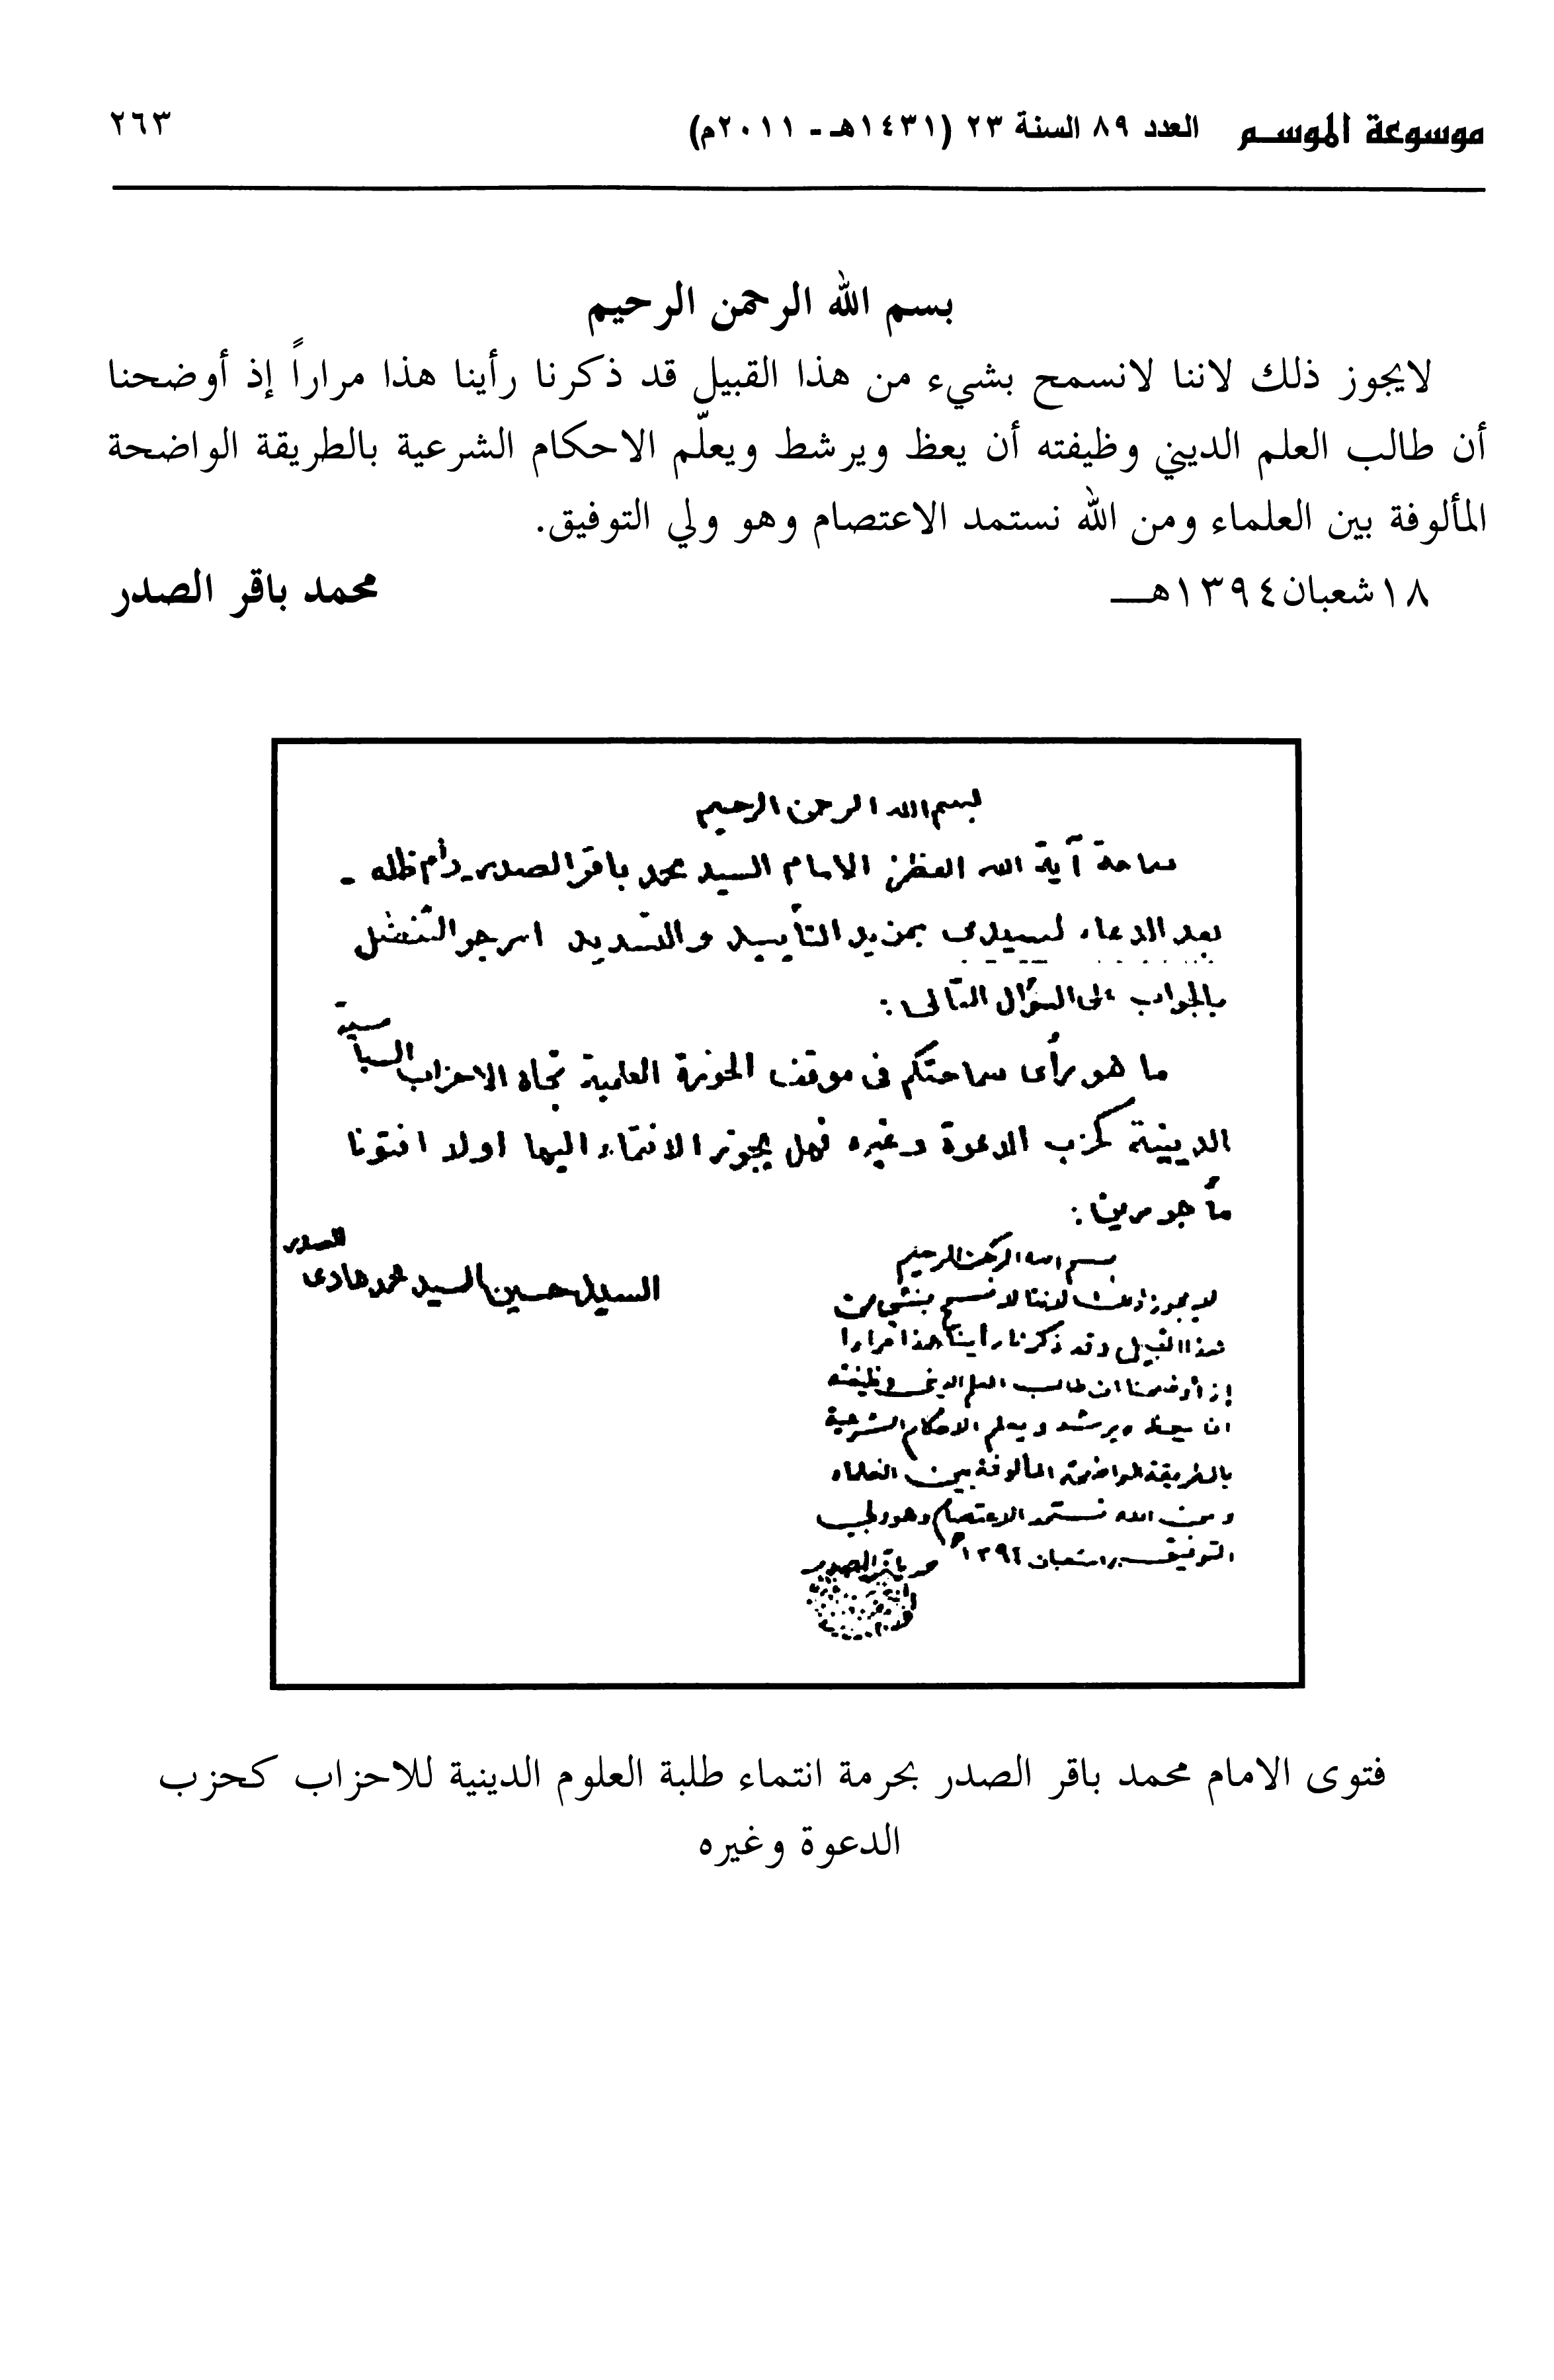 موسوعة الموسم العدد ٨٩ السنة ٢٣ (١٤٣١هـ - ٢٠١١م) ٢٦٣
بسم الله الرحمن الرحيم
لايجوز ذلك لاننا لانسمح بشيء من هذا القبيل قد ذكرنا رأينا هذا مراراً إذ أوضحنا
أن طالب العلم الديني وظيفته أن يعظ ويرشط ويعلّم الاحكام الشرعية بالطريقة الواضحة
المألوفة بين العلماء ومن الله نستمد الاعتصام وهو ولي التوفيق.
١٨شعبان١٣٩٤هـ محمد باقر الصدر
بسم الله الرحمن الرحيم
سماحة آية الله العظمى الامام السيد محمد باقر الصدر - دام ظله -
بعد الدعاء لسيدي بمزيد التأييد والتسديد ارجو التفضل
بالجواب على السؤال التالي:
ما هو رأي سماحتكم في موقف الحوزة العلمية تجاه الاحزاب السياسية
الدينية كحزب الدعوة وغيره فهل يجوز الانتماء اليها اولا افتونا
مأجورين:
بسم الله الرحمن الرحيم
السيد حسين السيد محمد هادي الصدر
لا يجوز ذلك لاننا لا نسمح بشي من
هذا القبيل وقد ذكرنا رأينا هذا مرارا
إذ أوضحنا ان طالب العلم الديني وظيفته
ان يعظ ويرشد ويعلم الاحكام الشرعية
بالطريقة الواضحة المألوفة بين العلماء
ومن الله نستمد الاعتصام وهو ولي
التوفيق شعبان ١٣٩٤ هـ
محمد باقر الصدر
فتوى الامام محمد باقر الصدر بحرمة انتماء طلبة العلوم الدينية للاحزاب كحزب
الدعوة وغيره